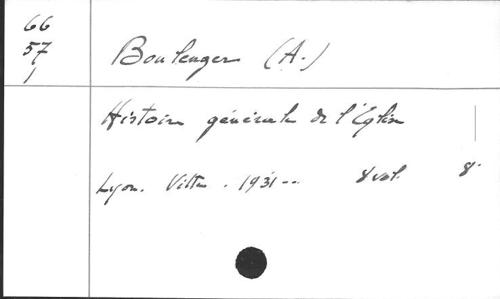 66
57
1
Boulenger (A.)
Histoire générale de l'Église
Lyon. Vitte. 1931-- 8 vol. 8°